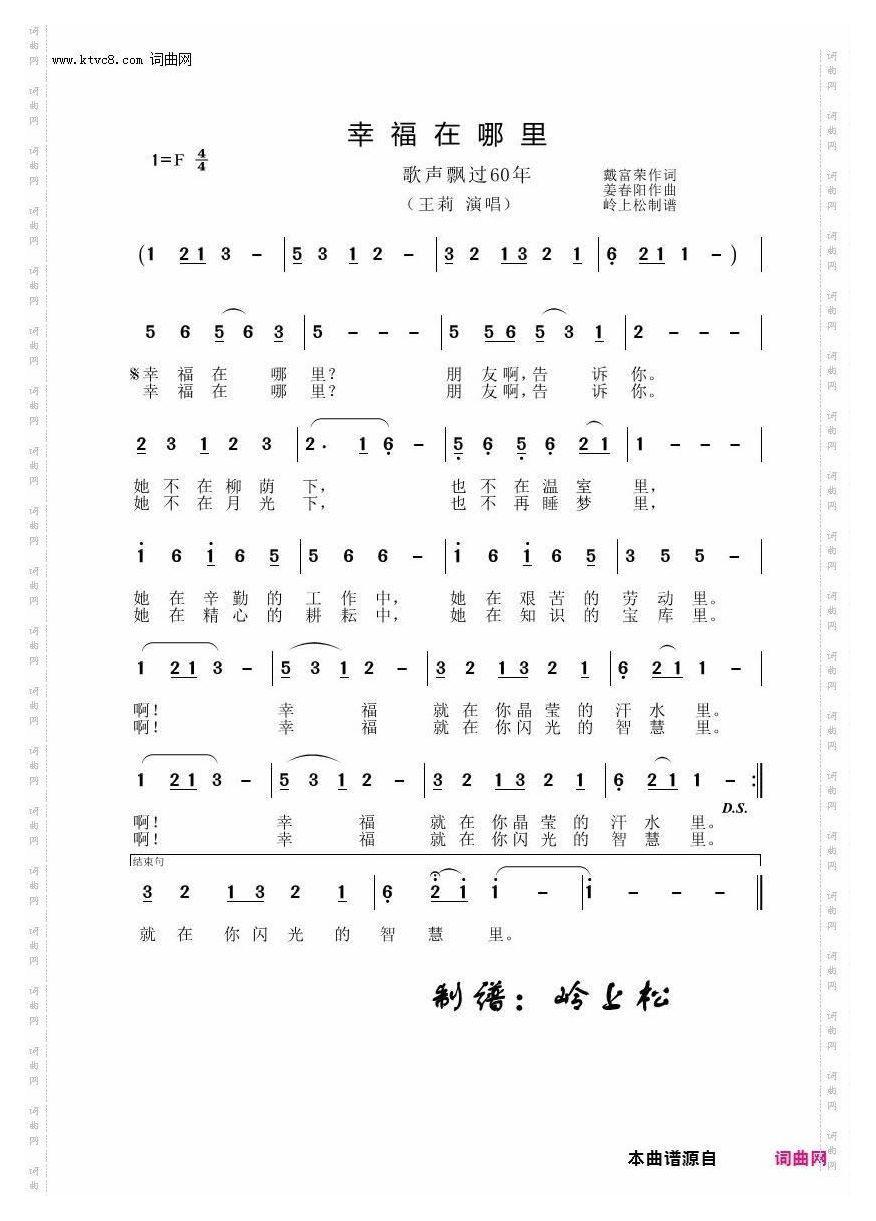 www.ktvc8.com 词曲网
幸福在哪里
1=F 4/4
歌声飘过60年
(王莉 演唱)
戴富荣作词
姜春阳作曲
岭上松制谱
(1 2 1 3 - | 5 3 1 2 - | 3 2 1 3 2 1 | 6 2 1 1 -) |
5 6 5 6 3 | 5 - - - | 5 5 6 5 3 1 | 2 - - - |
𝄋幸福在哪里? 朋友啊,告诉你。
幸福在哪里? 朋友啊,告诉你。
2 3 1 2 3 | 2· 1 6 - | 5 6 5 6 2 1 | 1 - - - |
她不在柳荫下, 也不在温室里,
她不在月光下, 也不再睡梦里,
1 6 1 6 5 | 5 6 6 - | 1 6 1 6 5 | 3 5 5 - |
她在辛勤的工作中, 她在艰苦的劳动里。
她在精心的耕耘中, 她在知识的宝库里。
1 2 1 3 - | 5 3 1 2 - | 3 2 1 3 2 1 | 6 2 1 1 - |
啊! 幸福 就在你晶莹的汗水里。
啊! 幸福 就在你闪光的智慧里。
1 2 1 3 - | 5 3 1 2 - | 3 2 1 3 2 1 | 6 2 1 1 - :||
D.S.
啊! 幸福 就在你晶莹的汗水里。
啊! 幸福 就在你闪光的智慧里。
结束句
3 2 1 3 2 1 | 6 2 1 | 1 - | 1 - - ||
就在你闪光的智慧里。
制谱：岭上松
本曲谱源自 词曲网